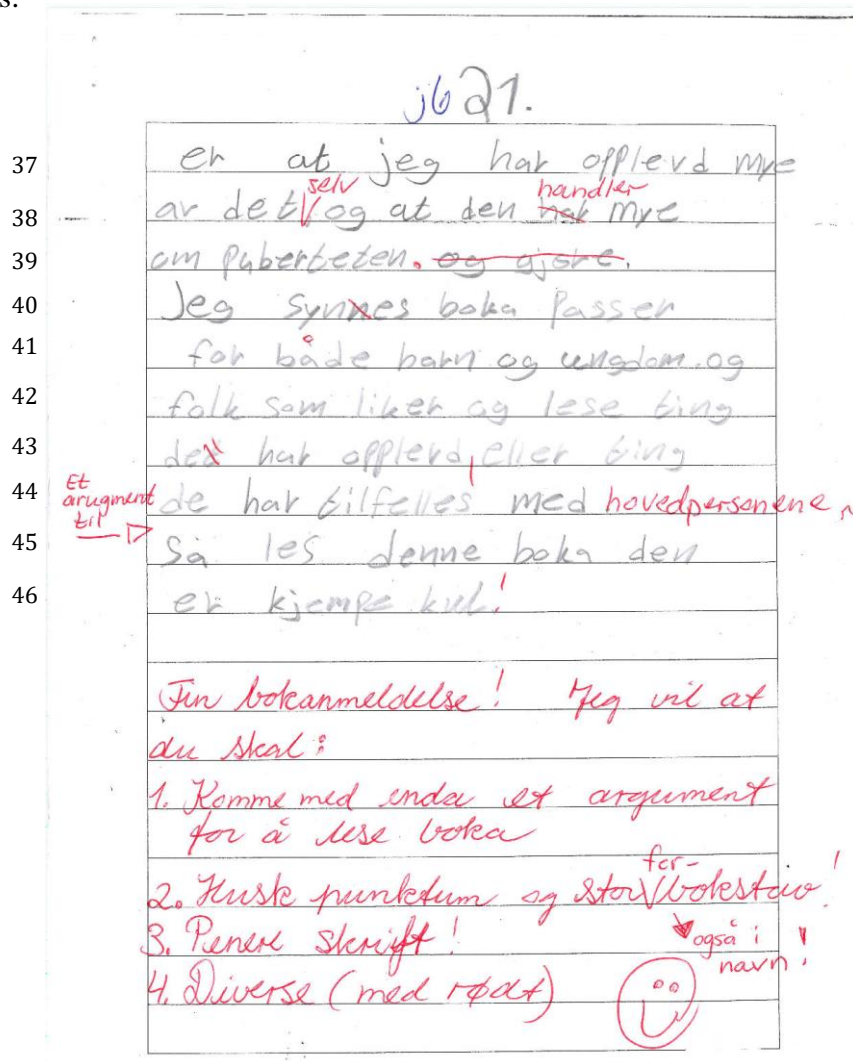 s.
jb 21.
37 er at jeg har opplevd mye
selv handler
38 av det V og at den har mye
39 om puberteten. og gjøre.
40 Jeg synnes boka passer
41 for både barn og ungdom og
42 folk som liker og lese ting
43 det har opplevd, eller ting
Et
arugment
til
44 de har tilfelles med hovedpersonene
45 Så les denne boka den
46 er kjempe kul!
Fin bokanmeldelse! Jeg vil at
du skal:
1. Komme med enda et argument
for å lese boka
for-
2. Husk punktum og stor V bokstav!
3. Penere skrift!
også i
navn!
4. Diverse (med rødt)